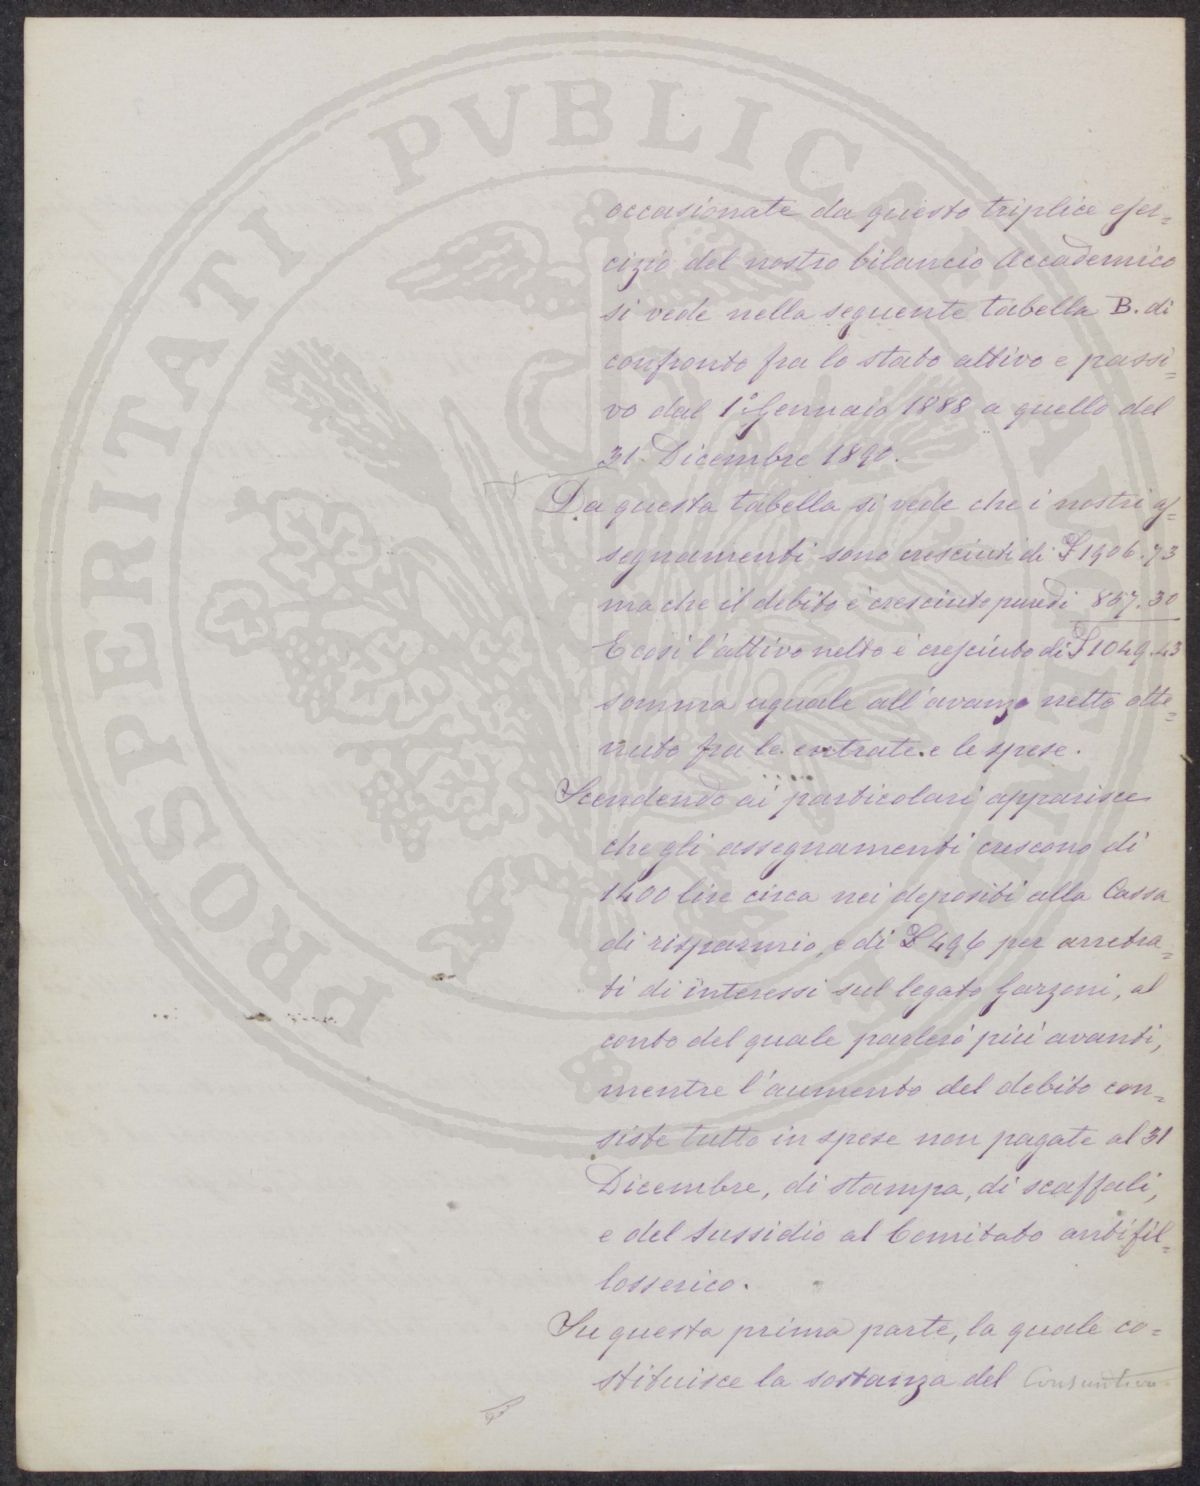 PROSPERITATI PVBLICAE AVGENDAE
occasionate da questo triplice eser=
cizio del nostro bilancio Accademico
si vede nella seguente tabella B. di
confronto fra lo stato attivo e passi=
vo dal 1° Gennaio 1888 a quello del
31 Dicembre 1890.
Da questa tabella si vede che i nostri as=
segnamenti sono cresciuti di £ 1906.73
ma che il debito è cresciuto pure di 857.30
E così l'attivo netto è cresciuto di £ 1049.43
somma uguale all'avanzo netto otte=
nuto fra le entrate e le spese.
Scendendo ai particolari apparisce
che gli assegnamenti crescono di
1400 lire circa nei depositi alla Cassa
di risparmio, e di £ 496 per arretra=
ti di interessi sul legato Garzoni, al
conto del quale parlerò più avanti,
mentre l'aumento del debito con=
siste tutto in spese non pagate al 31
Dicembre, di stampa, di scaffali,
e del sussidio al Comitato antifil=
losserico.
Su questa prima parte, la quale co=
stituisce la sostanza del Consuntivo